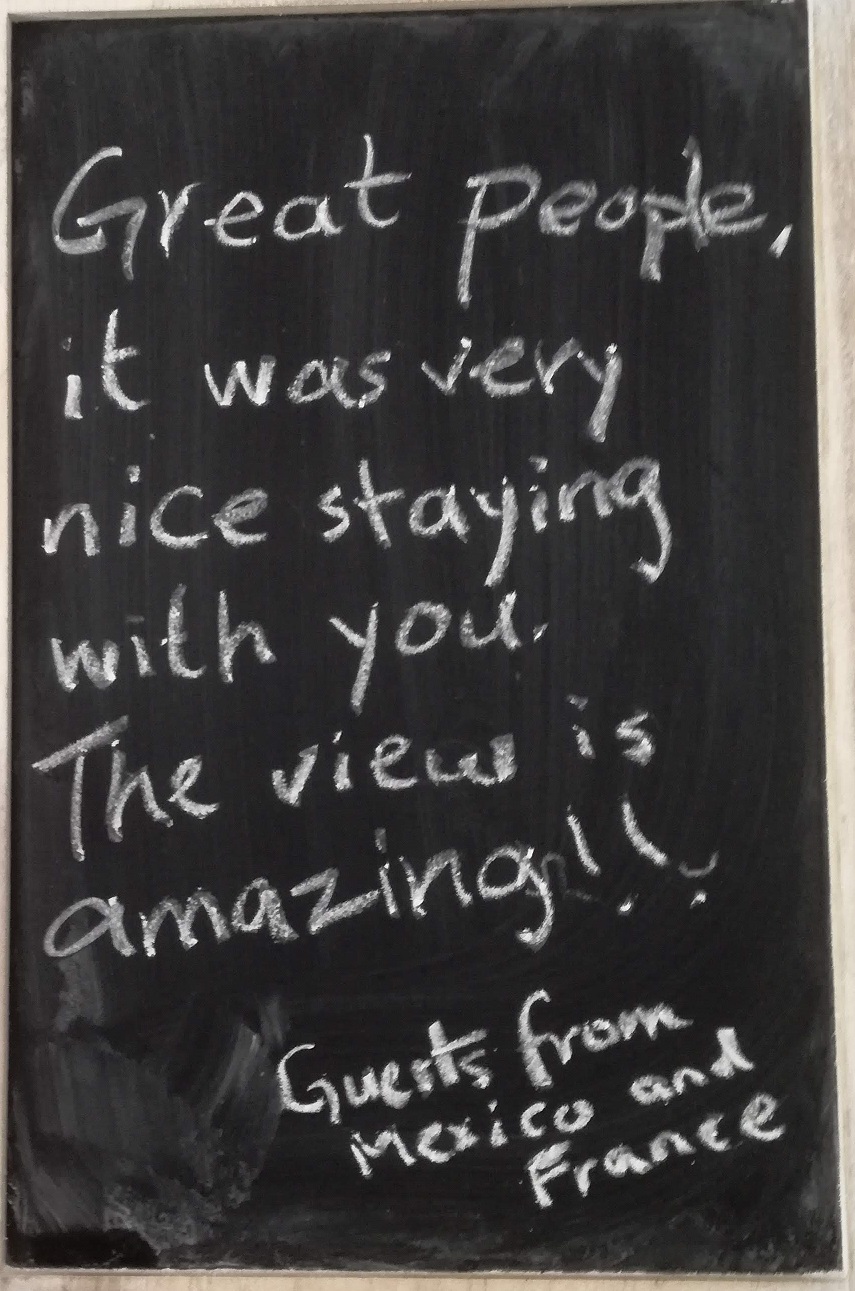 Great people,
it was very
nice staying
with you.
The view is
amazing!!
Guests from
Mexico and
France